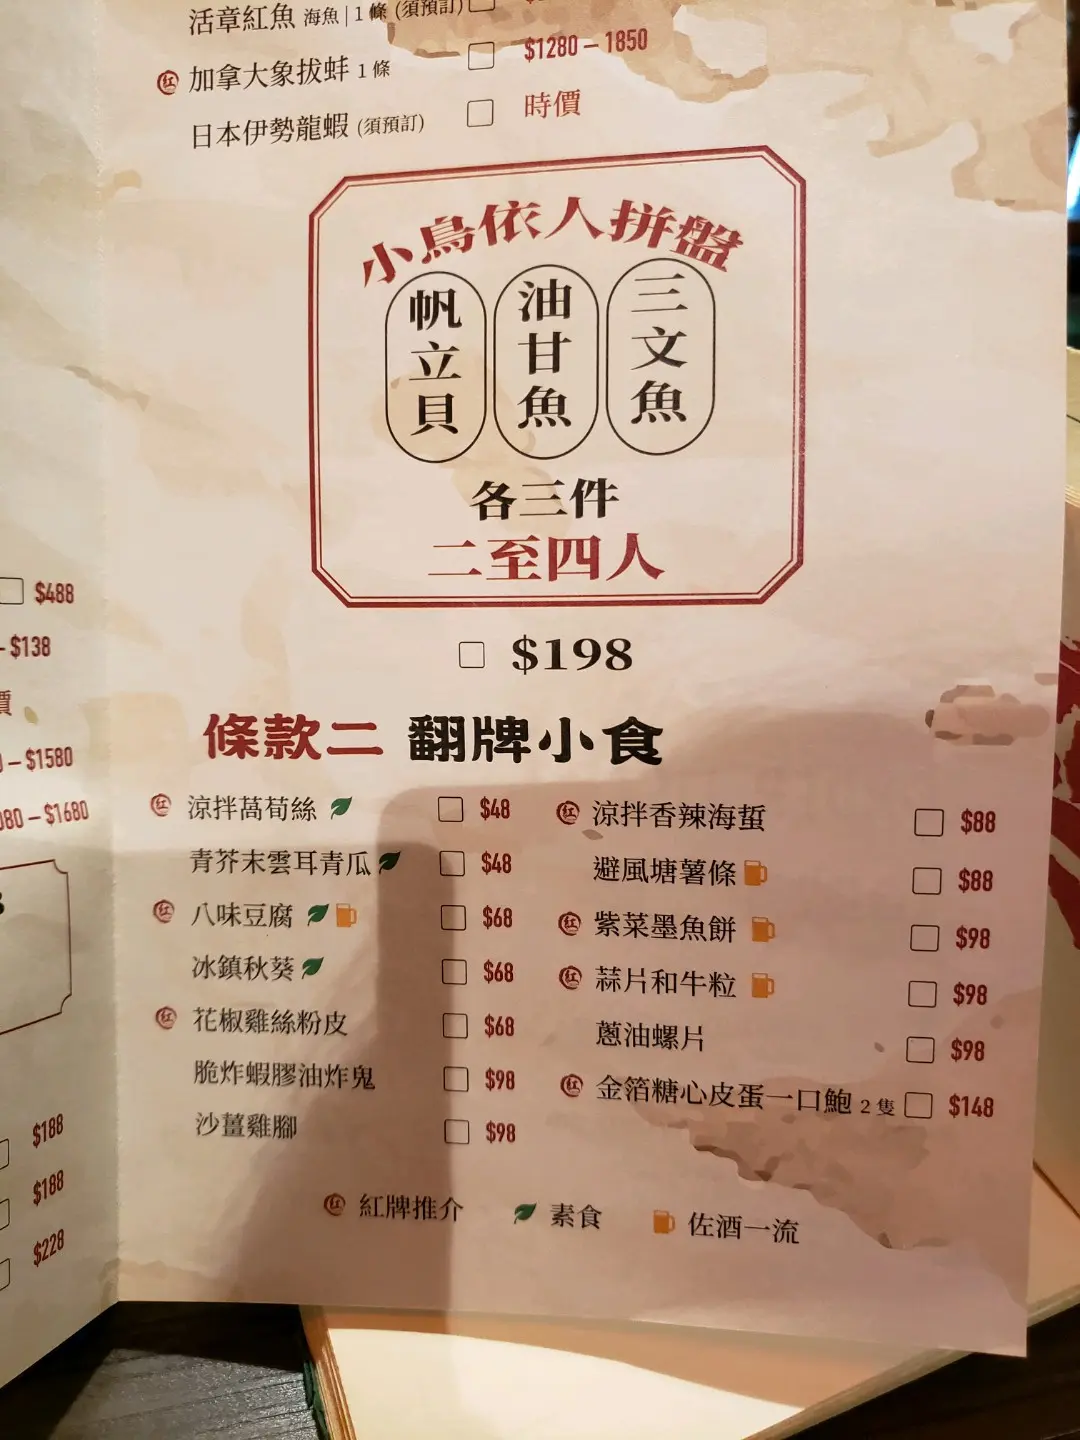 活章紅魚 海魚|1條 (須預訂)
紅 加拿大象拔蚌 1條 $1280 – 1850
日本伊勢龍蝦 (須預訂) 時價
小鳥依人拼盤
帆立貝
油甘魚
三文魚
各三件
二至四人
$198
$488
– $138
價
– $1580
080 – $1680
$188
$188
$228
條款二 翻牌小食
紅 涼拌萵筍絲 $48
青芥末雲耳青瓜 $48
紅 八味豆腐 $68
冰鎮秋葵 $68
紅 花椒雞絲粉皮 $68
脆炸蝦膠油炸鬼 $98
沙薑雞腳 $98
紅 涼拌香辣海蜇 $88
避風塘薯條 $88
紅 紫菜墨魚餅 $98
紅 蒜片和牛粒 $98
蔥油螺片 $98
紅 金箔糖心皮蛋一口鮑 2隻 $148
紅 紅牌推介 素食 佐酒一流